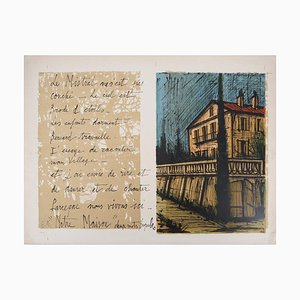 Le Mistral nous est
couché — Le ciel est
brodé d'étoiles
Les enfants dorment
Bernard travaille
Il essaye de raconter
mon village —
et j'ai envie de rire et
de pleurer et de chanter
parceque nous vivons ici —
"Notre Maison"